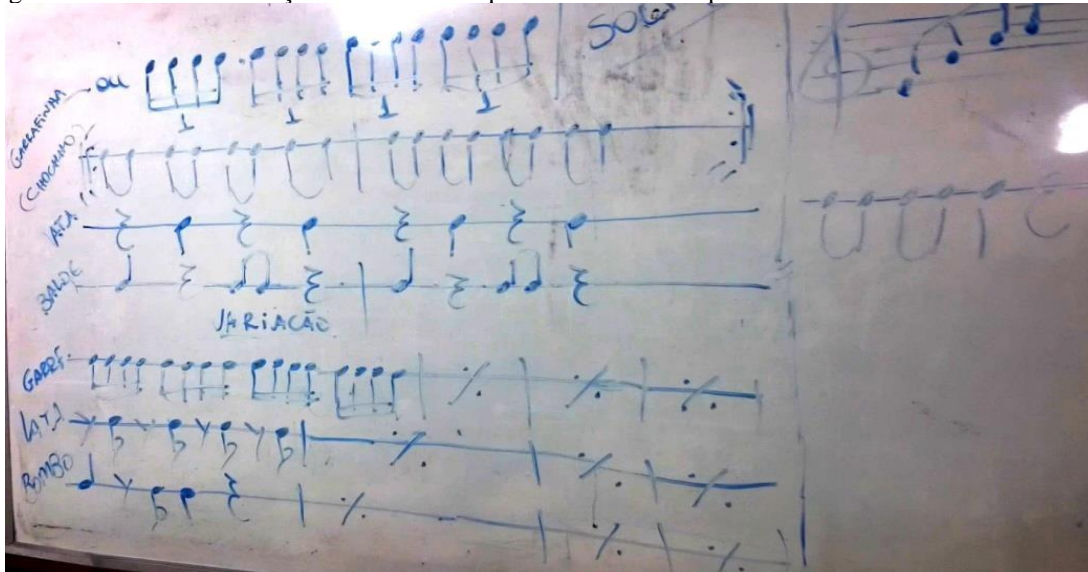 ou
SOLO
GARRAFINHA
(CHOCALHO)
LATA
BALDE
VARIAÇÃO
GARRF.
LATA
BOMBO